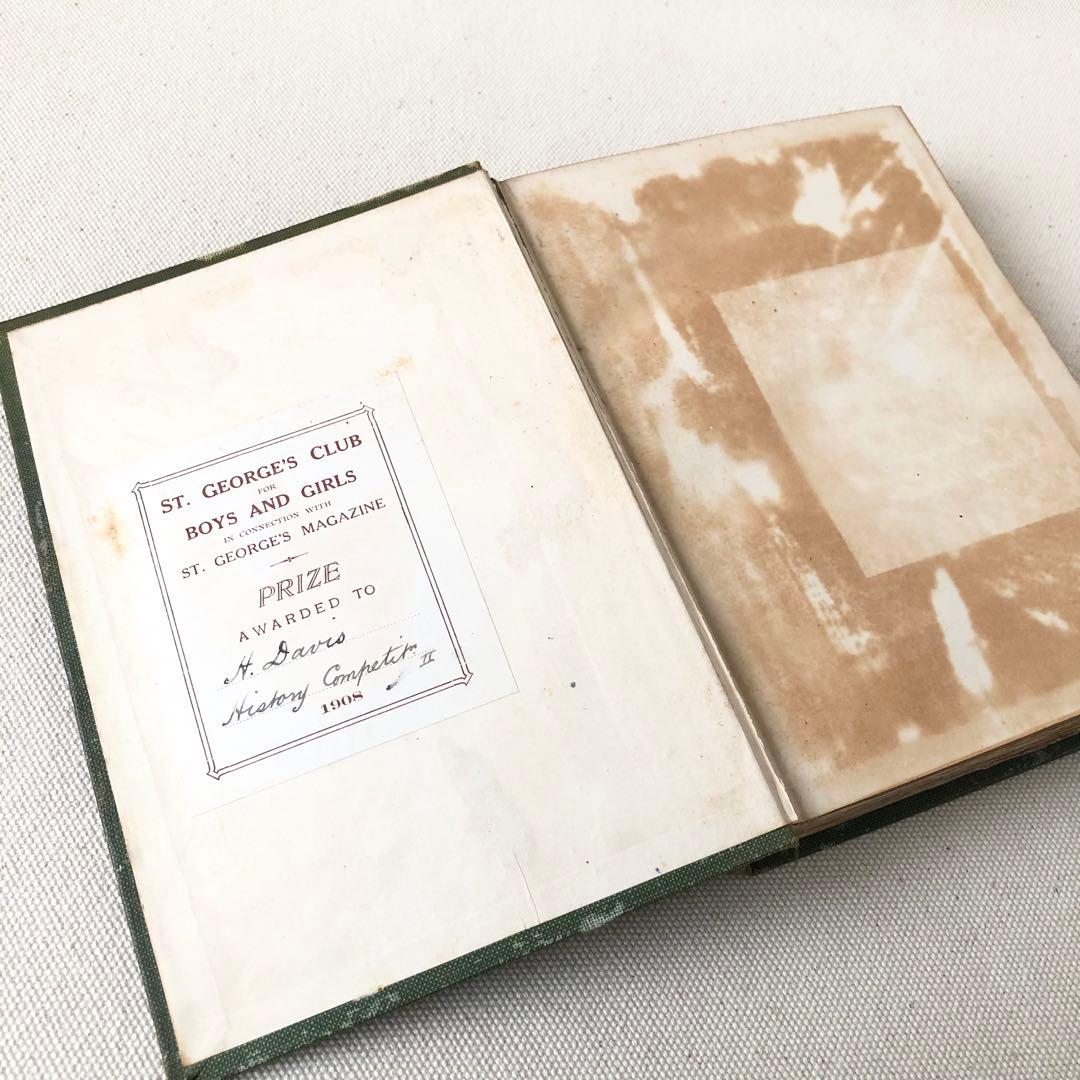 ST. GEORGE'S CLUB
FOR
BOYS AND GIRLS
IN CONNECTION WITH
ST. GEORGE'S MAGAZINE
PRIZE
AWARDED TO
H. Davis
History Competitn II
1908